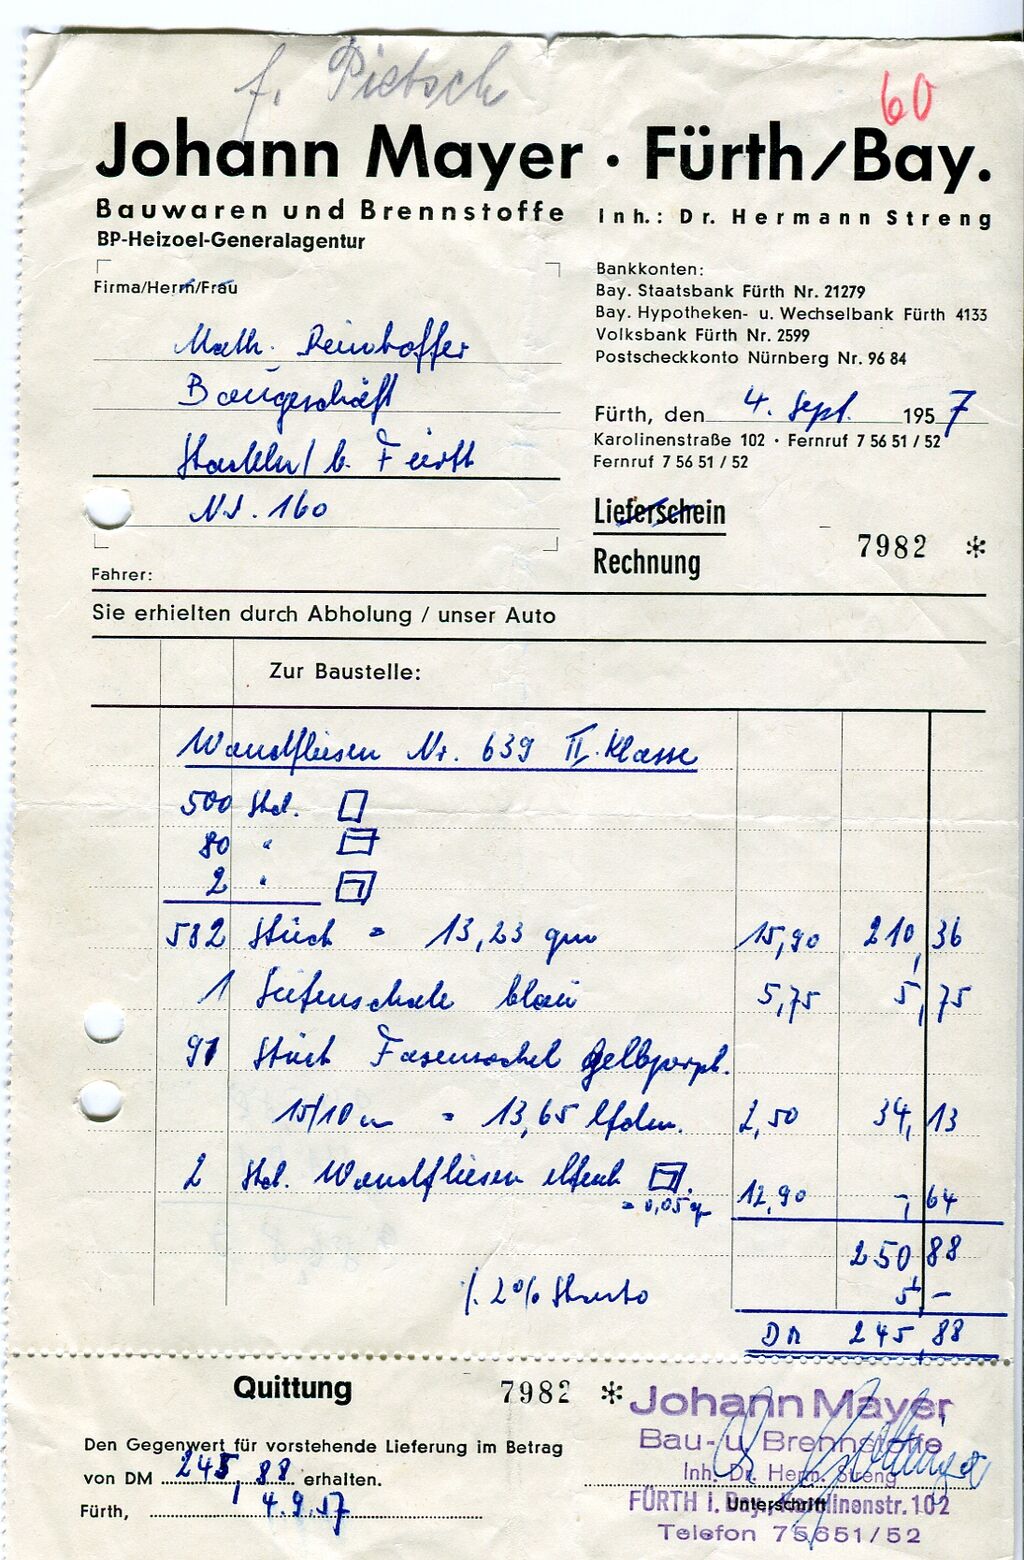 f. Pietsch
60
Johann Mayer · Fürth/Bay.
Bauwaren und Brennstoffe Inh.: Dr. Hermann Streng
BP-Heizoel-Generalagentur
Firma/Herrn/Frau
Bankkonten:
Bay. Staatsbank Fürth Nr. 21279
Bay. Hypotheken- u. Wechselbank Fürth 4133
Volksbank Fürth Nr. 2599
Postscheckkonto Nürnberg Nr. 96 84
Math.
Baugeschäft
b. Fürth
Nr. 160
Fürth, den 4. Sept. 1957
Karolinenstraße 102 · Fernruf 7 56 51 / 52
Fernruf 7 56 51 / 52
Lieferschein
Rechnung
7982 *
Fahrer:
Sie erhielten durch Abholung / unser Auto
Zur Baustelle:
Wandfliesen Nr. 639 II. Klasse
500 Stck.
80 "
2 "
582 Stück = 13,23 qm 15,90 210,36
1 Seifenschale blau 5,75 5,75
91 Stück Fasensockel gelbporph.
15/10 = 13,65 lfdm. 2,50 34,13
2 Stck. Wandfliesen elfenb.
= 0,05 12,90 -,64
250,88
./. 2% Skonto 5,-
DM 245,88
Quittung 7982 *
Den Gegenwert für vorstehende Lieferung im Betrag
von DM 245,88 erhalten.
Fürth, 4.9.57
Johann Mayer
Bau- u. Brennstoffe
Inh. Dr. Herm. Streng
FÜRTH i. Bay., Karolinenstr. 102
Unterschrift
Telefon 75651/52